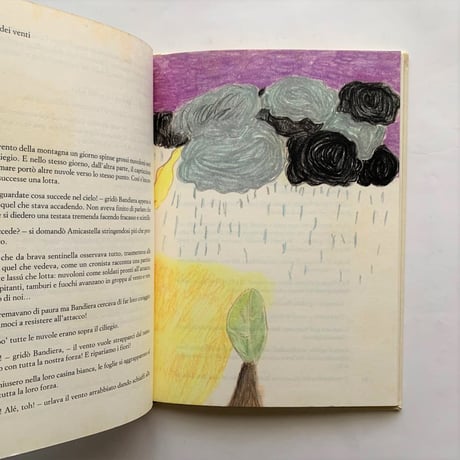 dei venti
vento della montagna un giorno spinse grossi nuvoloni
iliegio. E nello stesso giorno, dall'altra parte, il capriccioso
mare portò altre nuvole verso lo stesso punto. Così
successe una lotta.
guardate cosa succede nel cielo! – gridò Bandiera appena
quel che stava accadendo. Non aveva finito di parlare che
si diedero una testata tremenda facendo fracasso e scintille
cede? – si domandò Amicastella stringendosi più che
che da brava sentinella osservava tutto, trasmetteva alle
quel che vedeva, come un cronista racconta una partita
e lassù che lotta: nuvoloni come soldati pronti all'assalto
pitanti, tamburi e fuochi avanzano in groppa al vento
di noi...
tremavano di paura ma Bandiera cercava di far loro coraggio
moci a resistere all'attacco!
po' tutte le nuvole erano sopra il ciliegio.
! – gridò Bandiera, – il vento vuole strapparci dal
o con tutta la nostra forza! E ripariamo i fiori!
hiusero nella loro casina bianca, le foglie si aggrapparono
tutta la loro forza.
! Alé, toh! – urlava il vento arrabbiato dando schiaffi alle